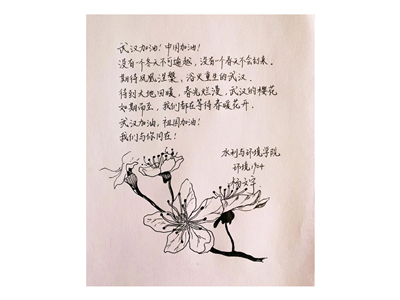 武汉加油！中国加油！
没有一个冬天不可逾越，没有一个春天不会到来。
期待凤凰涅槃，浴火重生的武汉。
待到大地回暖，春光烂漫，武汉的樱花
如期而至，我们都在等待春暖花开。
武汉加油，祖国加油！
我们与你同在！
水利与环境学院
环境1904
杨文宇